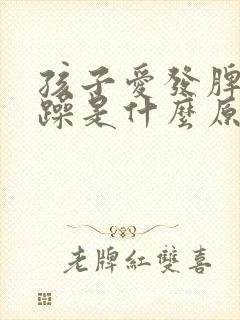 孩子愛發脾
躁是什麼原
老牌紅雙喜